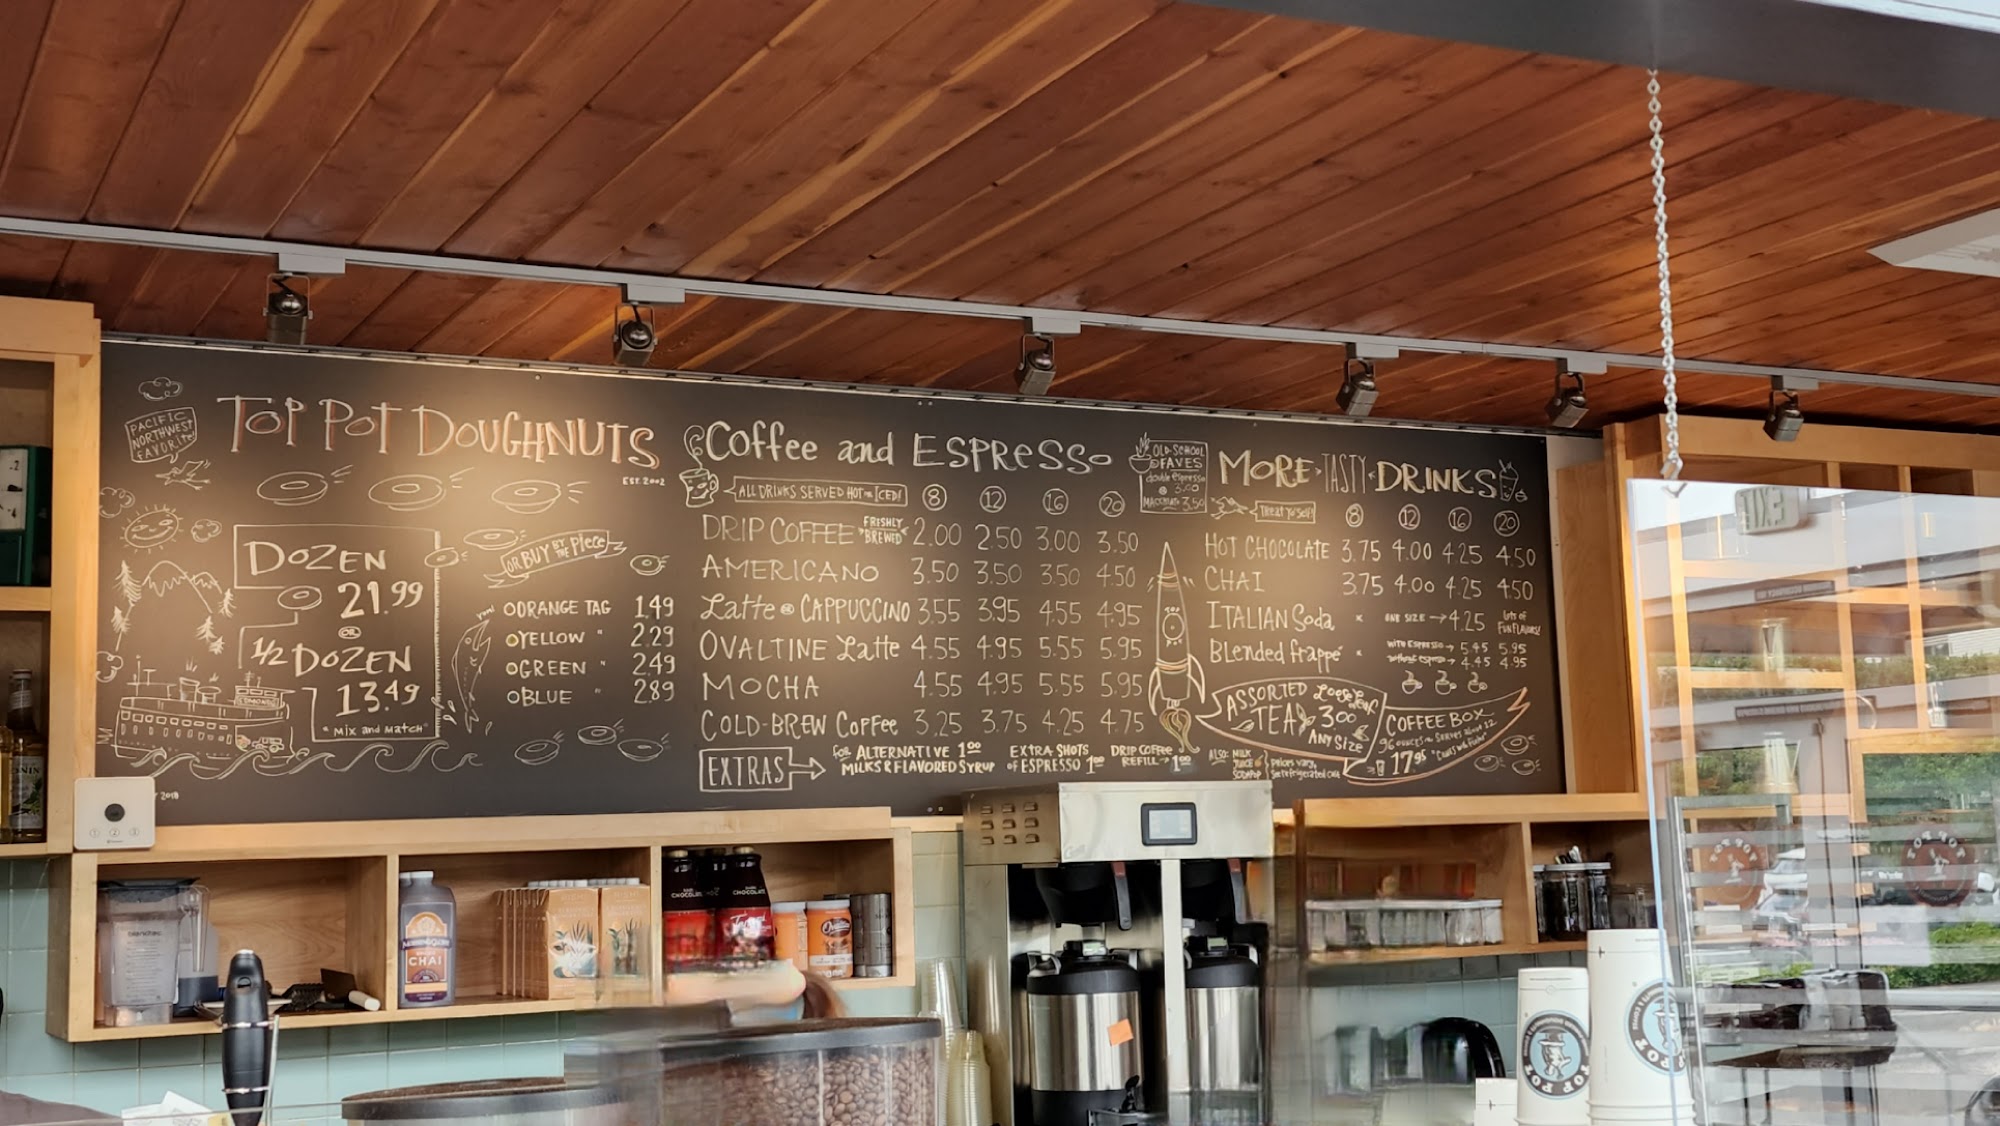 PACIFIC
NORTHWEST
FAVORITE!
TOP POT DOUGHNUTS
EST. 2002
DOZEN
21.99
OR
1/2 DOZEN
13.49
"MIX AND MATCH"
OR BUY BY THE PIECE
yum!
ORANGE TAG 1.49
YELLOW " 2.29
GREEN " 2.49
BLUE " 2.89
EDMONDS
2018
Coffee and ESPRESSO
ALL DRINKS SERVED HOT OR ICED!
8 12 16 20
DRIP COFFEE FRESHLY BREWED 2.00 2.50 3.00 3.50
AMERICANO 3.50 3.50 3.50 4.50
Latte OR CAPPUCCINO 3.55 3.95 4.55 4.95
OVALTINE Latte 4.55 4.95 5.55 5.95
MOCHA 4.55 4.95 5.55 5.95
COLD-BREW COFFEE 3.25 3.75 4.25 4.75
EXTRAS
for ALTERNATIVE 1.00
MILKS & FLAVORED SYRUP
EXTRA SHOTS
OF ESPRESSO 1.00
DRIP COFFEE
REFILL 1.00
ALSO: MILK
JUICE
prices vary,
See refrigerated case
OLD-SCHOOL
FAVES
double espresso
3.00
MACCHIATO 3.50
MORE TASTY DRINKS
TREAT YO'SELF!
8 12 16 20
HOT CHOCOLATE 3.75 4.00 4.25 4.50
CHAI 3.75 4.00 4.25 4.50
ITALIAN Soda ONE SIZE 4.25 lots of FUN FLAVORS!
Blended frappé WITH ESPRESSO 5.45 5.95
without espresso 4.45 4.95
ASSORTED Loose Leaf
TEA 3.00
ANY SIZE
COFFEE BOX
96 OUNCES SERVES ABOUT 12
17.95
TOP POT
EXIT
blendtec
CHAI
CHOCOLATE
CHOCOLATE
Torani
Ovaltine
1 2 3
TOP POT
TOP POT
TOP POT
TOP POT